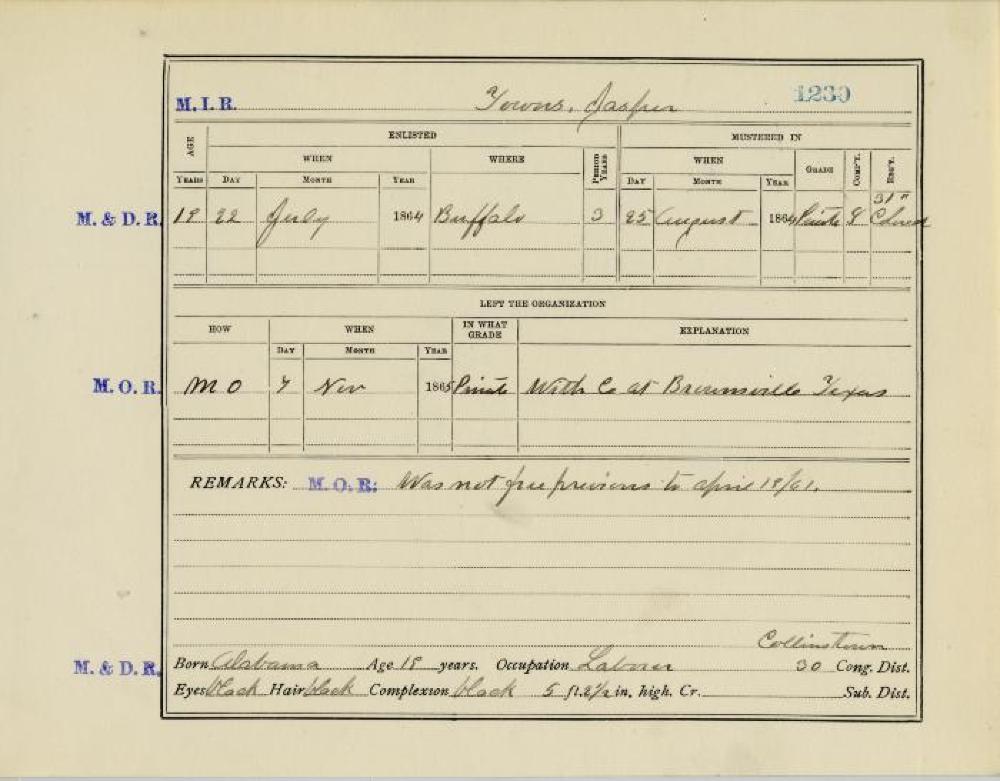 M. I. R. Towns, Jasper 1230
AGE ENLISTED MUSTERED IN
WHEN WHERE PERIOD YEARS WHEN GRADE COMP'Y. REG'T.
YEARS DAY MONTH YEAR DAY MONTH YEAR
31"
M. & D. R. 18 22 July 1864 Buffalo 3 25 August 1864 Private Colored
LEFT THE ORGANIZATION
HOW WHEN IN WHAT GRADE EXPLANATION
DAY MONTH YEAR
M. O. R. M O 7 Nov 1865 Private With Co at Brownsville Texas
REMARKS: M. O. R: Was not free previous to April 19/61.
Collinstown
M. & D. R. Born Alabama Age 18 years. Occupation Laborer 30 Cong. Dist.
Eyes black Hair black Complexion black 5 ft. 2½ in. high. Cr. Sub. Dist.